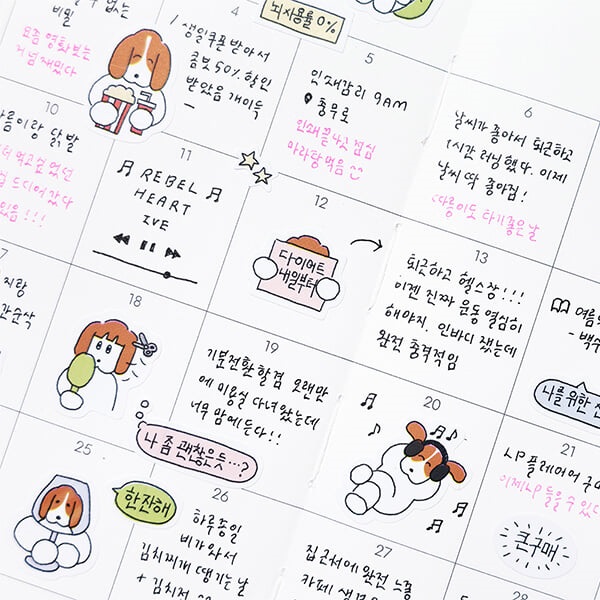 비밀
요즘 영화보는
4
생일쿠폰 받아서
콤보 50% 할인
받았음 개이득
뇌사용률 0%
5
인쇄감리 9AM
충무로
인쇄 끝나고 점심
마라탕 먹음
6
날씨가 좋아서 퇴근하고
1시간 러닝했다. 이제
날씨 딱 좋아짐!
따릉이도 타기 좋은 날
10
닭발
드디어 갔다
있음!!!
11
REBEL
HEART
IVE
12
다이어트
내일부터
13
퇴근하고 헬스장!!!
이젠 진짜 운동 열심히
해야지. 인바디 쟀는데
완전 충격적임
18
19
기분전환할 겸 오랜만
에 미용실 다녀왔는데
너무 맘에 든다!!
나 좀 괜찮은듯...?
20
나를 위한
21
LP 플레이어
이제 LP 들을 수 있다
큰구매
25
한잔해
26
하루종일
비가 와서
김치찌개 땡기는 날
+ 김치전
27
집 근처에 완전
카페
28